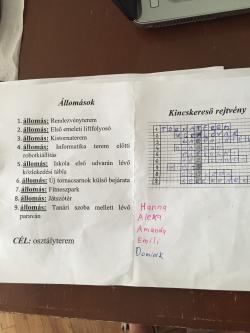 Állomások
1. állomás: Rendezvényterem
2. állomás: Első emeleti liftfolyosó
3. állomás: Kistornaterem
4. állomás: Informatika terem előtti
robotkiállítás
5. állomás: Iskola első udvarán lévő
közlekedési tábla
6. állomás: Új tornacsarnok külső bejárata
7. állomás: Fitneszpark
8. állomás: Játszótér
9. állomás: Tanári szoba mellett lévő
paraván
CÉL: osztályterem
Kincskereső rejtvény
Hanna
Alexa
Amanda
Emili
Dominik